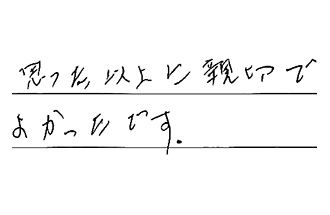 思った以上に親切で
よかったです.